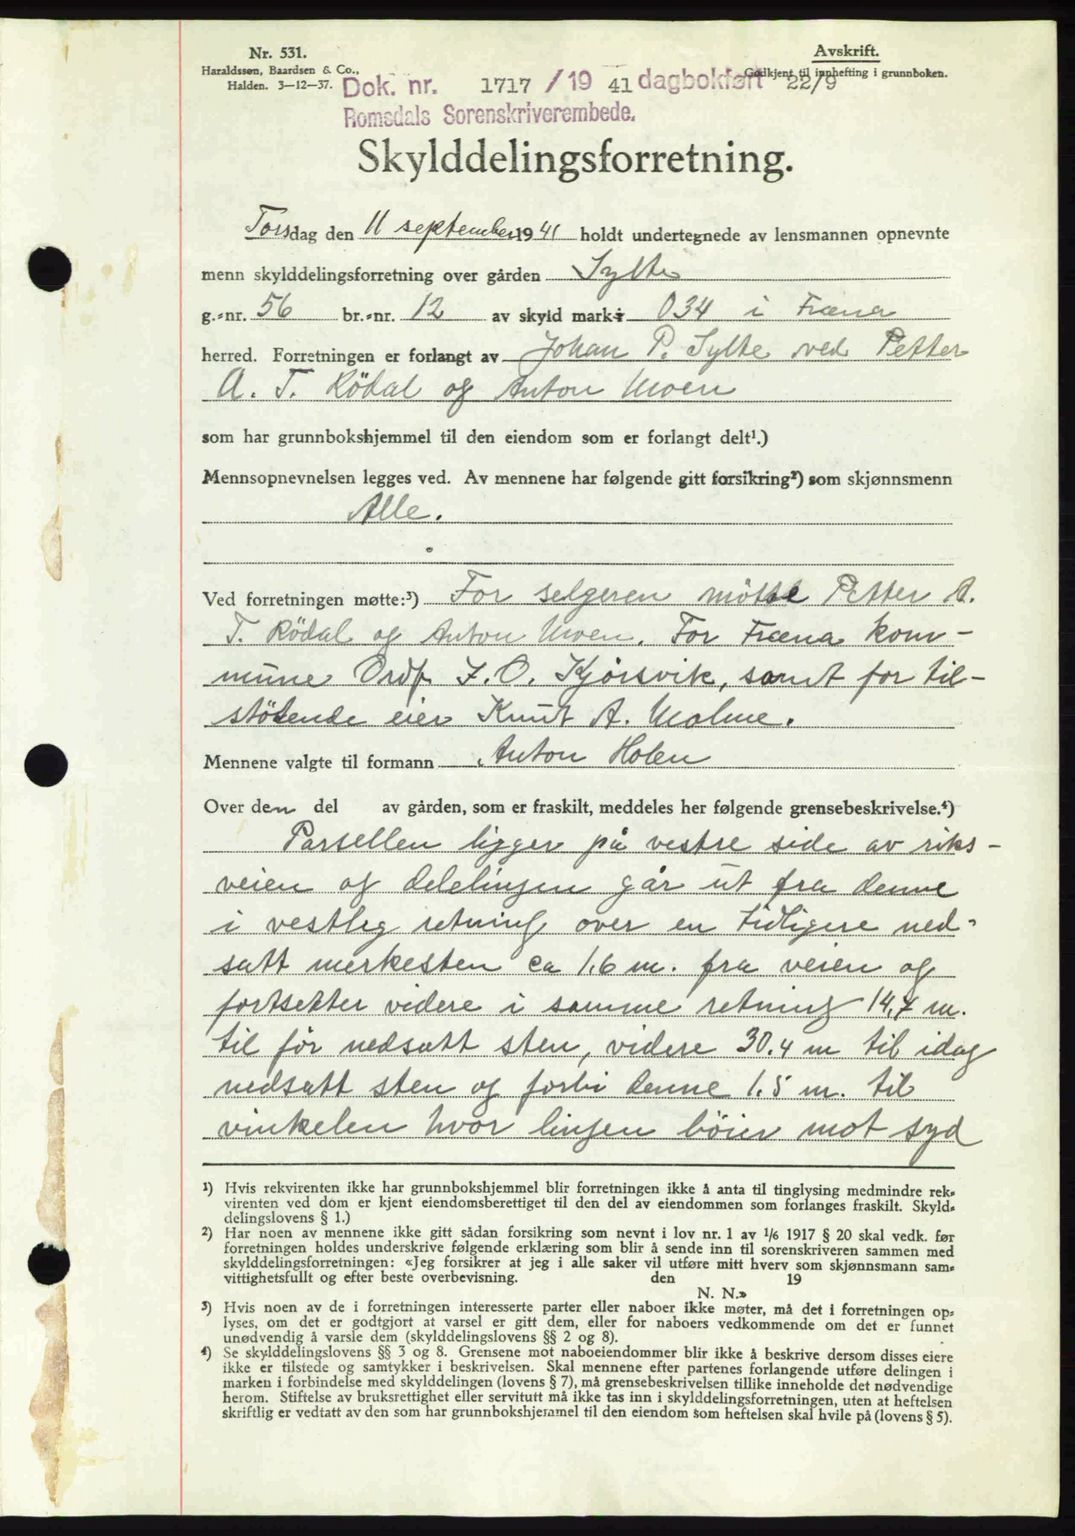 Nr. 531.
Haraldssøn, Baardsen & Co.,
Halden. 3—12—37.
Avskrift.
Godkjent til innhefting i grunnboken.
Dok. nr. 1717 /19 41 dagbokført 22/9
Romsdals Sorenskriverembede.
Skylddelingsforretning.
Torsdag den 11 september 1941 holdt undertegnede av lensmannen opnevnte
menn skylddelingsforretning over gården Sylte
g.-nr. 56 br.-nr. 12 av skyld mark 034 i Fræna
herred. Forretningen er forlangt av Johan P. Sylte ved Petter
A. T. Rödal og Anton Moen
som har grunnbokshjemmel til den eiendom som er forlangt delt¹.)
Mennsopnevnelsen legges ved. Av mennene har følgende gitt forsikring²) som skjønnsmenn
Alle.
Ved forretningen møtte:³) For selgeren mötte Petter A.
T. Rödal og Anton Moen. For Fræna kom-
mune Ordf. J. O. Kjörsvik, samt for til-
stötende eier Knut A. Malme.
Mennene valgte til formann Anton Holen
Over den del av gården, som er fraskilt, meddeles her følgende grensebeskrivelse.⁴)
Parsellen ligger på vestre side av riks-
veien og delelinjen går ut fra denne
i vestleg retning over en tidligere ned-
satt merkesten ca 1.6 m. fra veien og
fortsetter videre i samme retning 14,7 m.
til för nedsatt sten, videre 30.4 m til idag
nedsatt sten og forbi denne 1.5 m. til
vinkelen hvor linjen böier mot syd
¹) Hvis rekvirenten ikke har grunnbokshjemmel blir forretningen ikke å anta til tinglysing medmindre rek-
virenten ved dom er kjent eiendomsberettiget til den del av eiendommen som forlanges fraskilt. Skyld-
delingslovens § 1.)
²) Har noen av mennene ikke gitt sådan forsikring som nevnt i lov nr. 1 av 1/6 1917 § 20 skal vedk. før
forretningen holdes underskrive følgende erklæring som blir å sende inn til sorenskriveren sammen med
skylddelingsforretningen: «Jeg forsikrer at jeg i alle saker vil utføre mitt hverv som skjønnsmann sam-
vittighetsfullt og efter beste overbevisning. den 19
N. N.»
³) Hvis noen av de i forretningen interesserte parter eller naboer ikke møter, må det i forretningen op-
lyses, om det er godtgjort at varsel er gitt dem, eller for naboers vedkommende om det er funnet
unødvendig å varsle dem (skylddelingslovens §§ 2 og 8).
⁴) Se skylddelingslovens §§ 3 og 8. Grensene mot naboeiendommer blir ikke å beskrive dersom disses eiere
ikke er tilstede og samtykker i beskrivelsen. Skal mennene efter partenes forlangende utføre delingen i
marken i forbindelse med skylddelingen (lovens § 7), må grensebeskrivelsen tillike inneholde det nødvendige
herom. Stiftelse av bruksrettighet eller servitutt må ikke tas inn i skylddelingsforretningen, uten at heftelsen
skriftlig er vedtatt av den som har grunnbokshjemmel til den eiendom som heftelsen skal hvile på (lovens § 5).